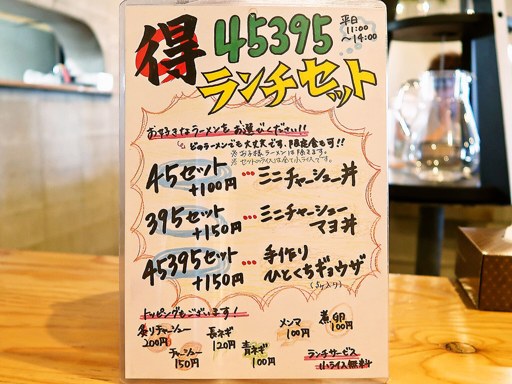 得 45395
平日
11:00
～14:00
ランチセット
お好きなラーメンをお選びください!!
どのラーメンでも大丈夫です。限定食も可!!
※お子様ラーメンは除きます。
※セットのライスは全て小ライスです。
45セット
+100円 … ミニチャーシュー丼
395セット
+150円 … ミニチャーシュー
マヨ丼
45395セット
+150円 … 手作り
ひとくちギョウザ
トッピングもございます!
炙りチャーシュー
200円
チャーシュー
150円
長ネギ
120円
青ネギ
100円
メンマ
100円
煮卵
100円
ランチサービス
小ライス無料